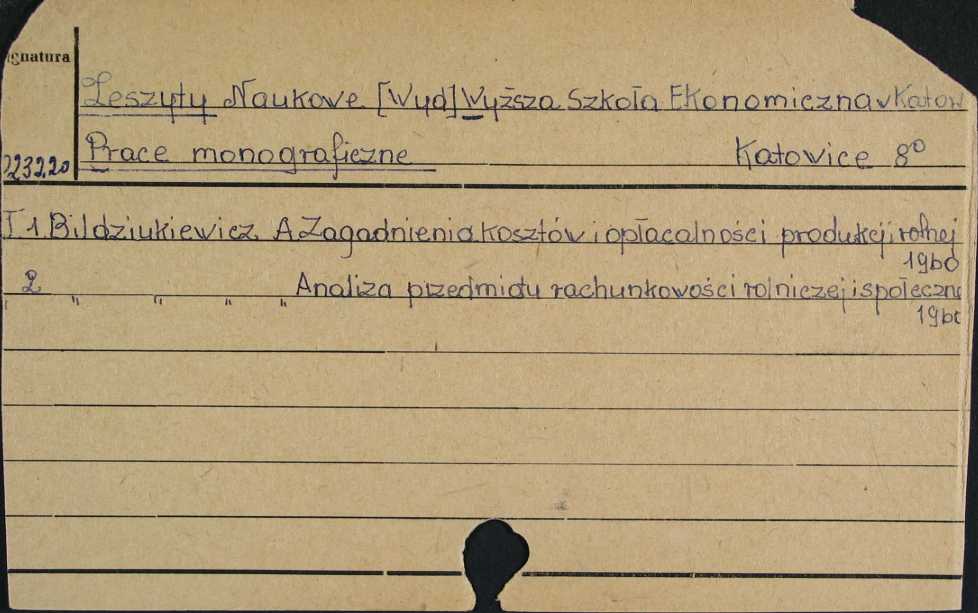 gnatura
Zeszyty Naukowe [Wyd] Wyższa Szkoła Ekonomiczna v Katow
Prace monograficzne Katowice 8°
223220
I 1 Bildziukiewicz A Zagadnienia kosztów i opłacalności produkcji rolnej
1960
2 " " " " Analiza przedmiotu rachunkowości rolniczej i społeczno
1960